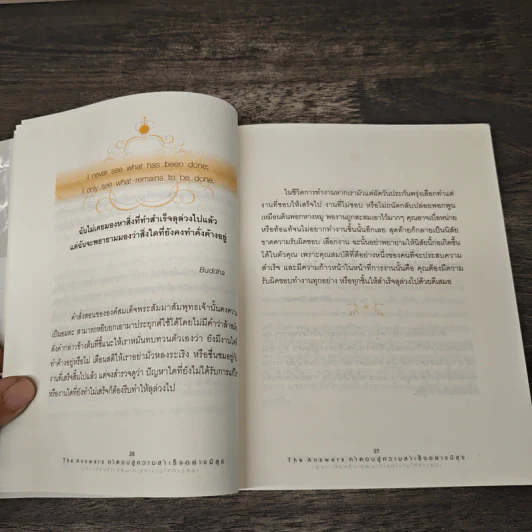 I never see what has been done;
I only see what remains to be done.
ฉันไม่เคยมองหาสิ่งที่ทำสำเร็จลุล่วงไปแล้ว
แต่ฉันจะพยายามมองว่าสิ่งใดที่ยังคงทำคั่งค้างอยู่
Buddha
คำสั่งสอนขององค์สมเด็จพระสัมมาสัมพุทธเจ้านั้นคงความ
เป็นอมตะ สามารถหยิบยกเอามาประยุกต์ใช้ได้โดยไม่มีคำว่าล้าสมัย
ดังคำกล่าวข้างต้นที่ชี้แนะให้เราหมั่นทบทวนตัวเองว่า ยังมีงานใดที่
ทำค้างอยู่หรือไม่ เตือนสติให้เราอย่ามัวหลงระเริง หรือชื่นชมอยู่กับ
งานที่เสร็จสิ้นไปแล้ว แต่จงสำรวจดูว่า ปัญหาใดที่ยังไม่ได้รับการแก้ไข
หรืองานใดที่ยังทำไม่เสร็จก็ต้องรีบทำให้ลุล่วงไป
26
The Answers คำตอบสู่ความสำเร็จอย่างมีสุข
ในชีวิตการทำงานหากเรามัวแต่ผัดวันประกันพรุ่งเลือกทำแต่
งานที่ชอบให้เสร็จไป งานที่ไม่ชอบ หรือไม่ถนัดกลับปล่อยพอกพูน
เหมือนดินพอกหางหมู พองานถูกสะสมเอาไว้มากๆ คุณอาจเบื่อหน่าย
หรือท้อแท้จนไม่อยากทำงานชิ้นนั้นอีกเลย สุดท้ายก็กลายเป็นนิสัย
ขาดความรับผิดชอบ เลือกงาน ฉะนั้นอย่าพยายามให้นิสัยนี้ก่อเกิดขึ้น
ได้ในตัวคุณ เพราะคุณสมบัติที่ดีอย่างหนึ่งของคนที่จะประสบความ
สำเร็จ และมีความก้าวหน้าในหน้าที่การงานนั้นคือ คุณต้องมีความ
รับผิดชอบทำงานทุกอย่าง หรือทุกชิ้นให้สำเร็จลุล่วงไปด้วยดีเสมอ
27
The Answers คำตอบสู่ความสำเร็จอย่างมีสุข